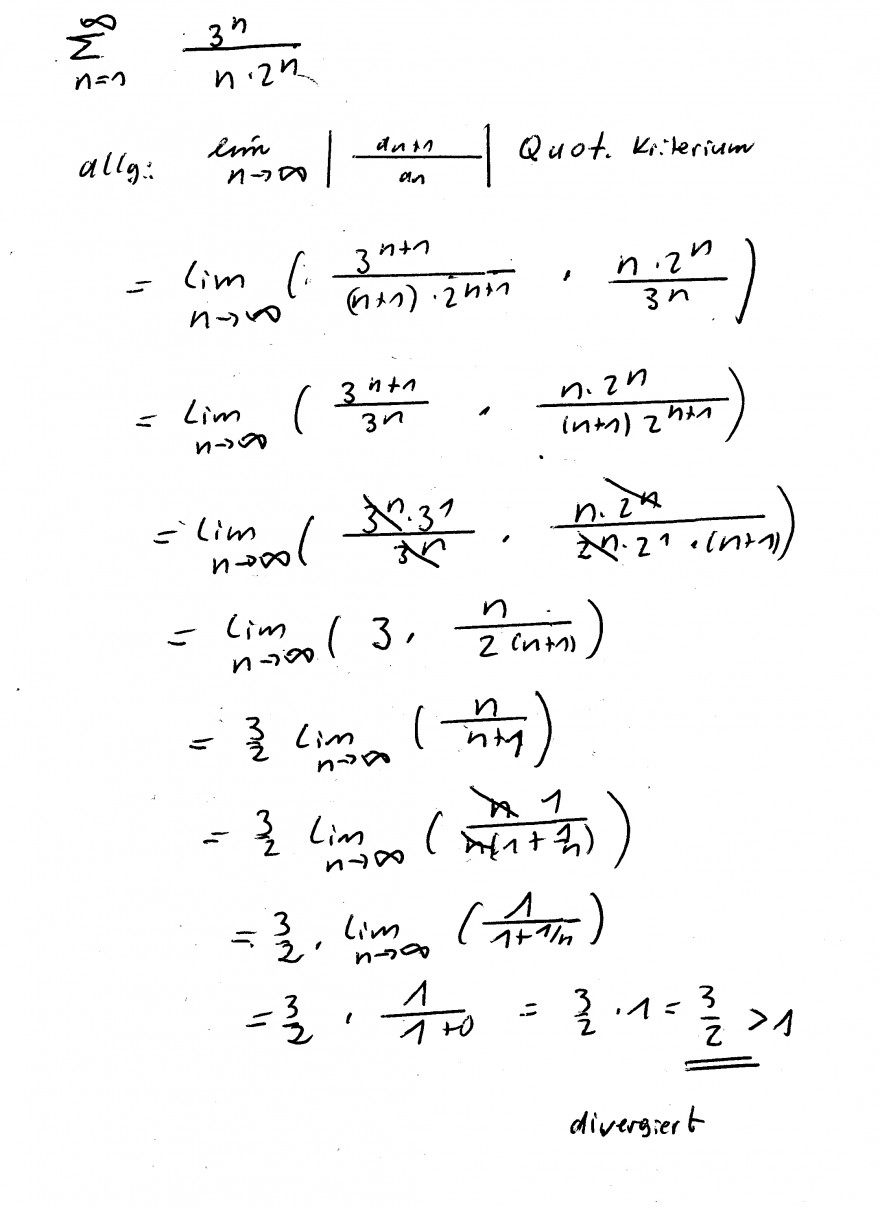 ∑_{n=1}^{∞} 3^n / (n · 2^n)
allg.: lim_{n→∞} | a_{n+1} / a_n | Quot. Kriterium
= lim_{n→∞} ( 3^{n+1} / ((n+1) · 2^{n+1}) · (n · 2^n) / 3^n )
= lim_{n→∞} ( 3^{n+1} / 3^n · (n · 2^n) / ((n+1) 2^{n+1}) )
= lim_{n→∞} ( (3^n · 3^1) / 3^n · (n · 2^n) / (2^n · 2^1 · (n+1)) )
= lim_{n→∞} ( 3 · n / (2 (n+1)) )
= 3/2 lim_{n→∞} ( n / (n+1) )
= 3/2 lim_{n→∞} ( n 1 / (n(1 + 1/n)) )
= 3/2 · lim_{n→∞} ( 1 / (1 + 1/n) )
= 3/2 · 1 / (1+0) = 3/2 · 1 = 3/2 > 1
divergiert